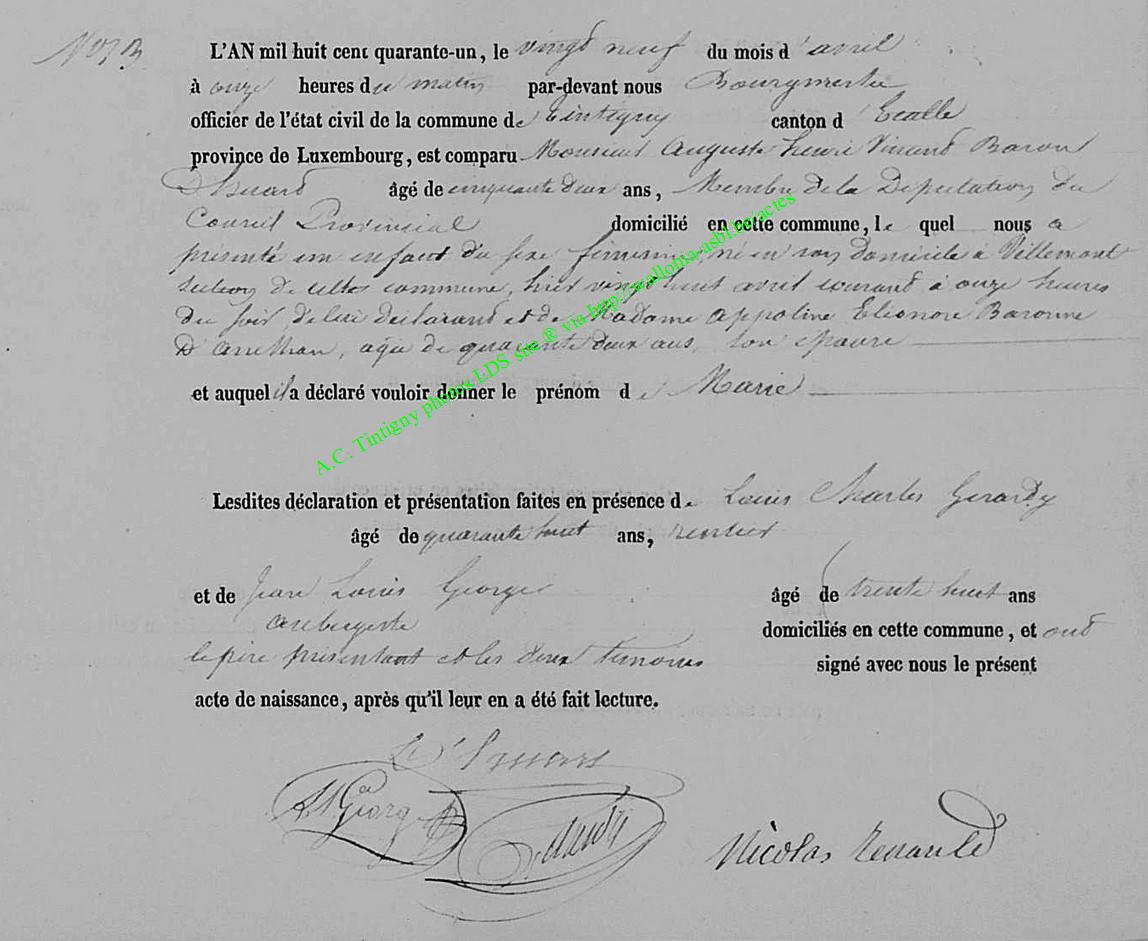 L'AN mil huit cent quarante-un, le vingt neuf du mois d'avril
à onze heures du matin par-devant nous Bourgmestre
officier de l'état civil de la commune de Tintigny canton d'Etalle
province de Luxembourg, est comparu Monsieur Auguste henri Baron
D'huart âgé de cinquante deux ans, Membre de la Députation du
Conseil Provincial domicilié en cette commune, le quel nous a
présenté un enfant du sexe féminin, né en son domicile à Villemont
section de cette commune, hier vingt huit avril courant à onze heures
du soir, de lui déclarant et de Madame Appoline Eléonore Baronne
D' agée de quarante deux ans, son épouse
et auquel il a déclaré vouloir donner le prénom de Marie
A.C. Tintigny photos LDS site ® via http://wallonia-asbl.be/actes
Lesdites déclaration et présentation faites en présence de Louis Charles Gerardy
âgé de quarante huit ans, rentier
et de Jean Louis Georges âgé de trente huit ans
aubergiste domiciliés en cette commune, et ont
le père présentant et les deux témoins signé avec nous le présent
acte de naissance, après qu'il leur en a été fait lecture.
Nicolas Renauld